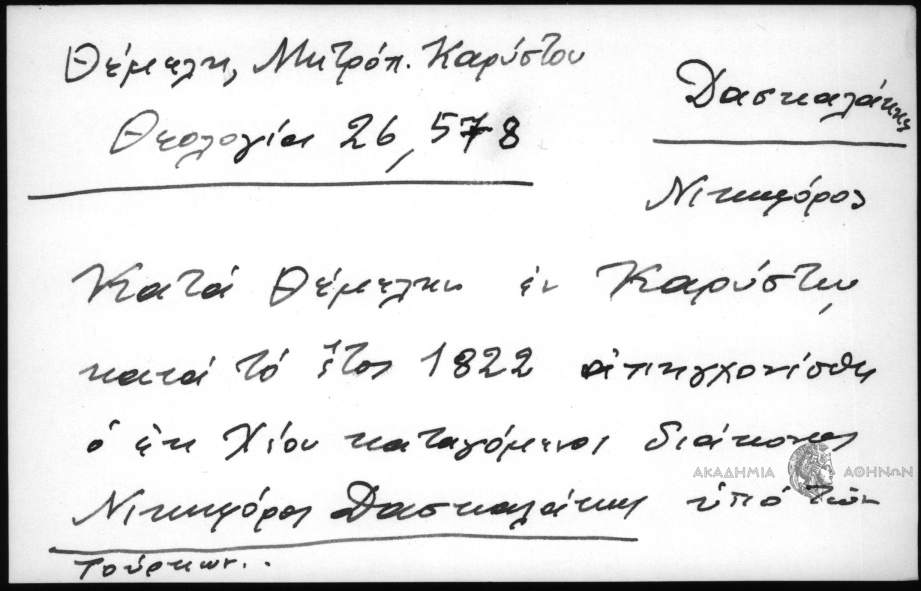 Θέμελη, Μητρόπ. Καρύστου
Θεολογία 26, 578
Δασκαλάκης
Νικηφόρος
Κατά Θέμελην ἐν Καρύστῳ,
κατά τό ἔτος 1822 ἀπηγχονίσθη
ὁ ἐκ Χίου καταγόμενος διάκονος
ΑΚΑΔΗΜΙΑ ΑΘΗΝΩΝ
Νικηφόρος Δασκαλάκης ὑπό τῶν
Τούρκων...